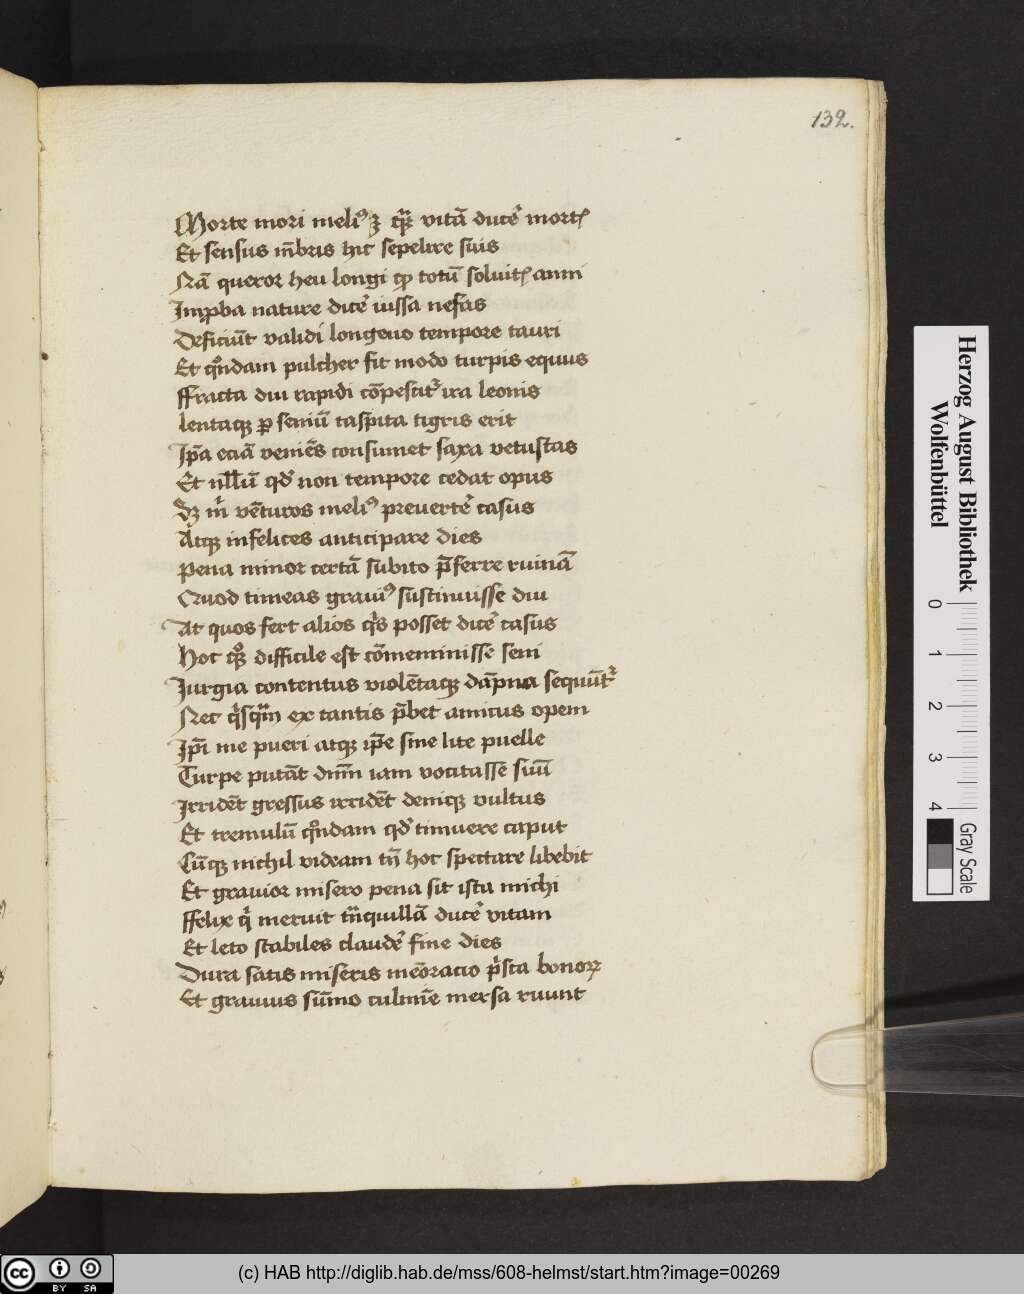 132.
Morte mori meliꝰ ꝫ qͣꝫ vitā ducē mortꝭ
Et sensus m̄bris hic sepelire suis
Nā queror heu longi ꝙ totū soluitꝭ anni
Imꝓba nature dicē iussa nefas
Deficiūt validi longeuo tempore tauri
Et qͦndam pulcher fit modo turpis equus
ffracta diu rapidi cōpescitᷣ ira leonis
lentaqꝫ ꝑ seniū caspita tigris erit
Ip̄a eciā veniēs consumet saxa vetustas
Et nllū qd̓ non tempore cedat opus
Sꝫ m̄ vēturos meliꝰ preuertē casus
Atqꝫ infelices anticipare dies
Pena minor certā subito p̄ferre ruinā
Quod timeas grauiꝰ sustinuisse diu
At quos fert alios qͥs posset dicē casus
Hoc qͦqꝫ difficile est cōmeminisse seni
Jurgia contentus violētaqꝫ dāpna sequūtᷣ
Nec qͥsqͣm ex tantis p̄bet amicus opem
Ip̄i me pueri atqꝫ ip̄e sine lite puelle
Turpe putāt dnm̄ iam vocitasse suū
Irridēt gressus irridēt deniqꝫ vultus
Et tremulū qͦndam qd̓ timuere caput
Cūqꝫ nichil videam tn̄ hoc spectare libebit
Et grauior misero pena sit ista michi
ffelix qͥ meruit tͣnquillā ducē vitam
Et leto stabiles claudē fine dies
Dura satis miseris meōracio pͥsta bonoꝝ
Et grauius sūmo culmīe mersa ruunt
Herzog August Bibliothek
Wolfenbüttel
0 1 2 3 4
Gray Scale
cc BY SA
(c) HAB http://diglib.hab.de/mss/608-helmst/start.htm?image=00269